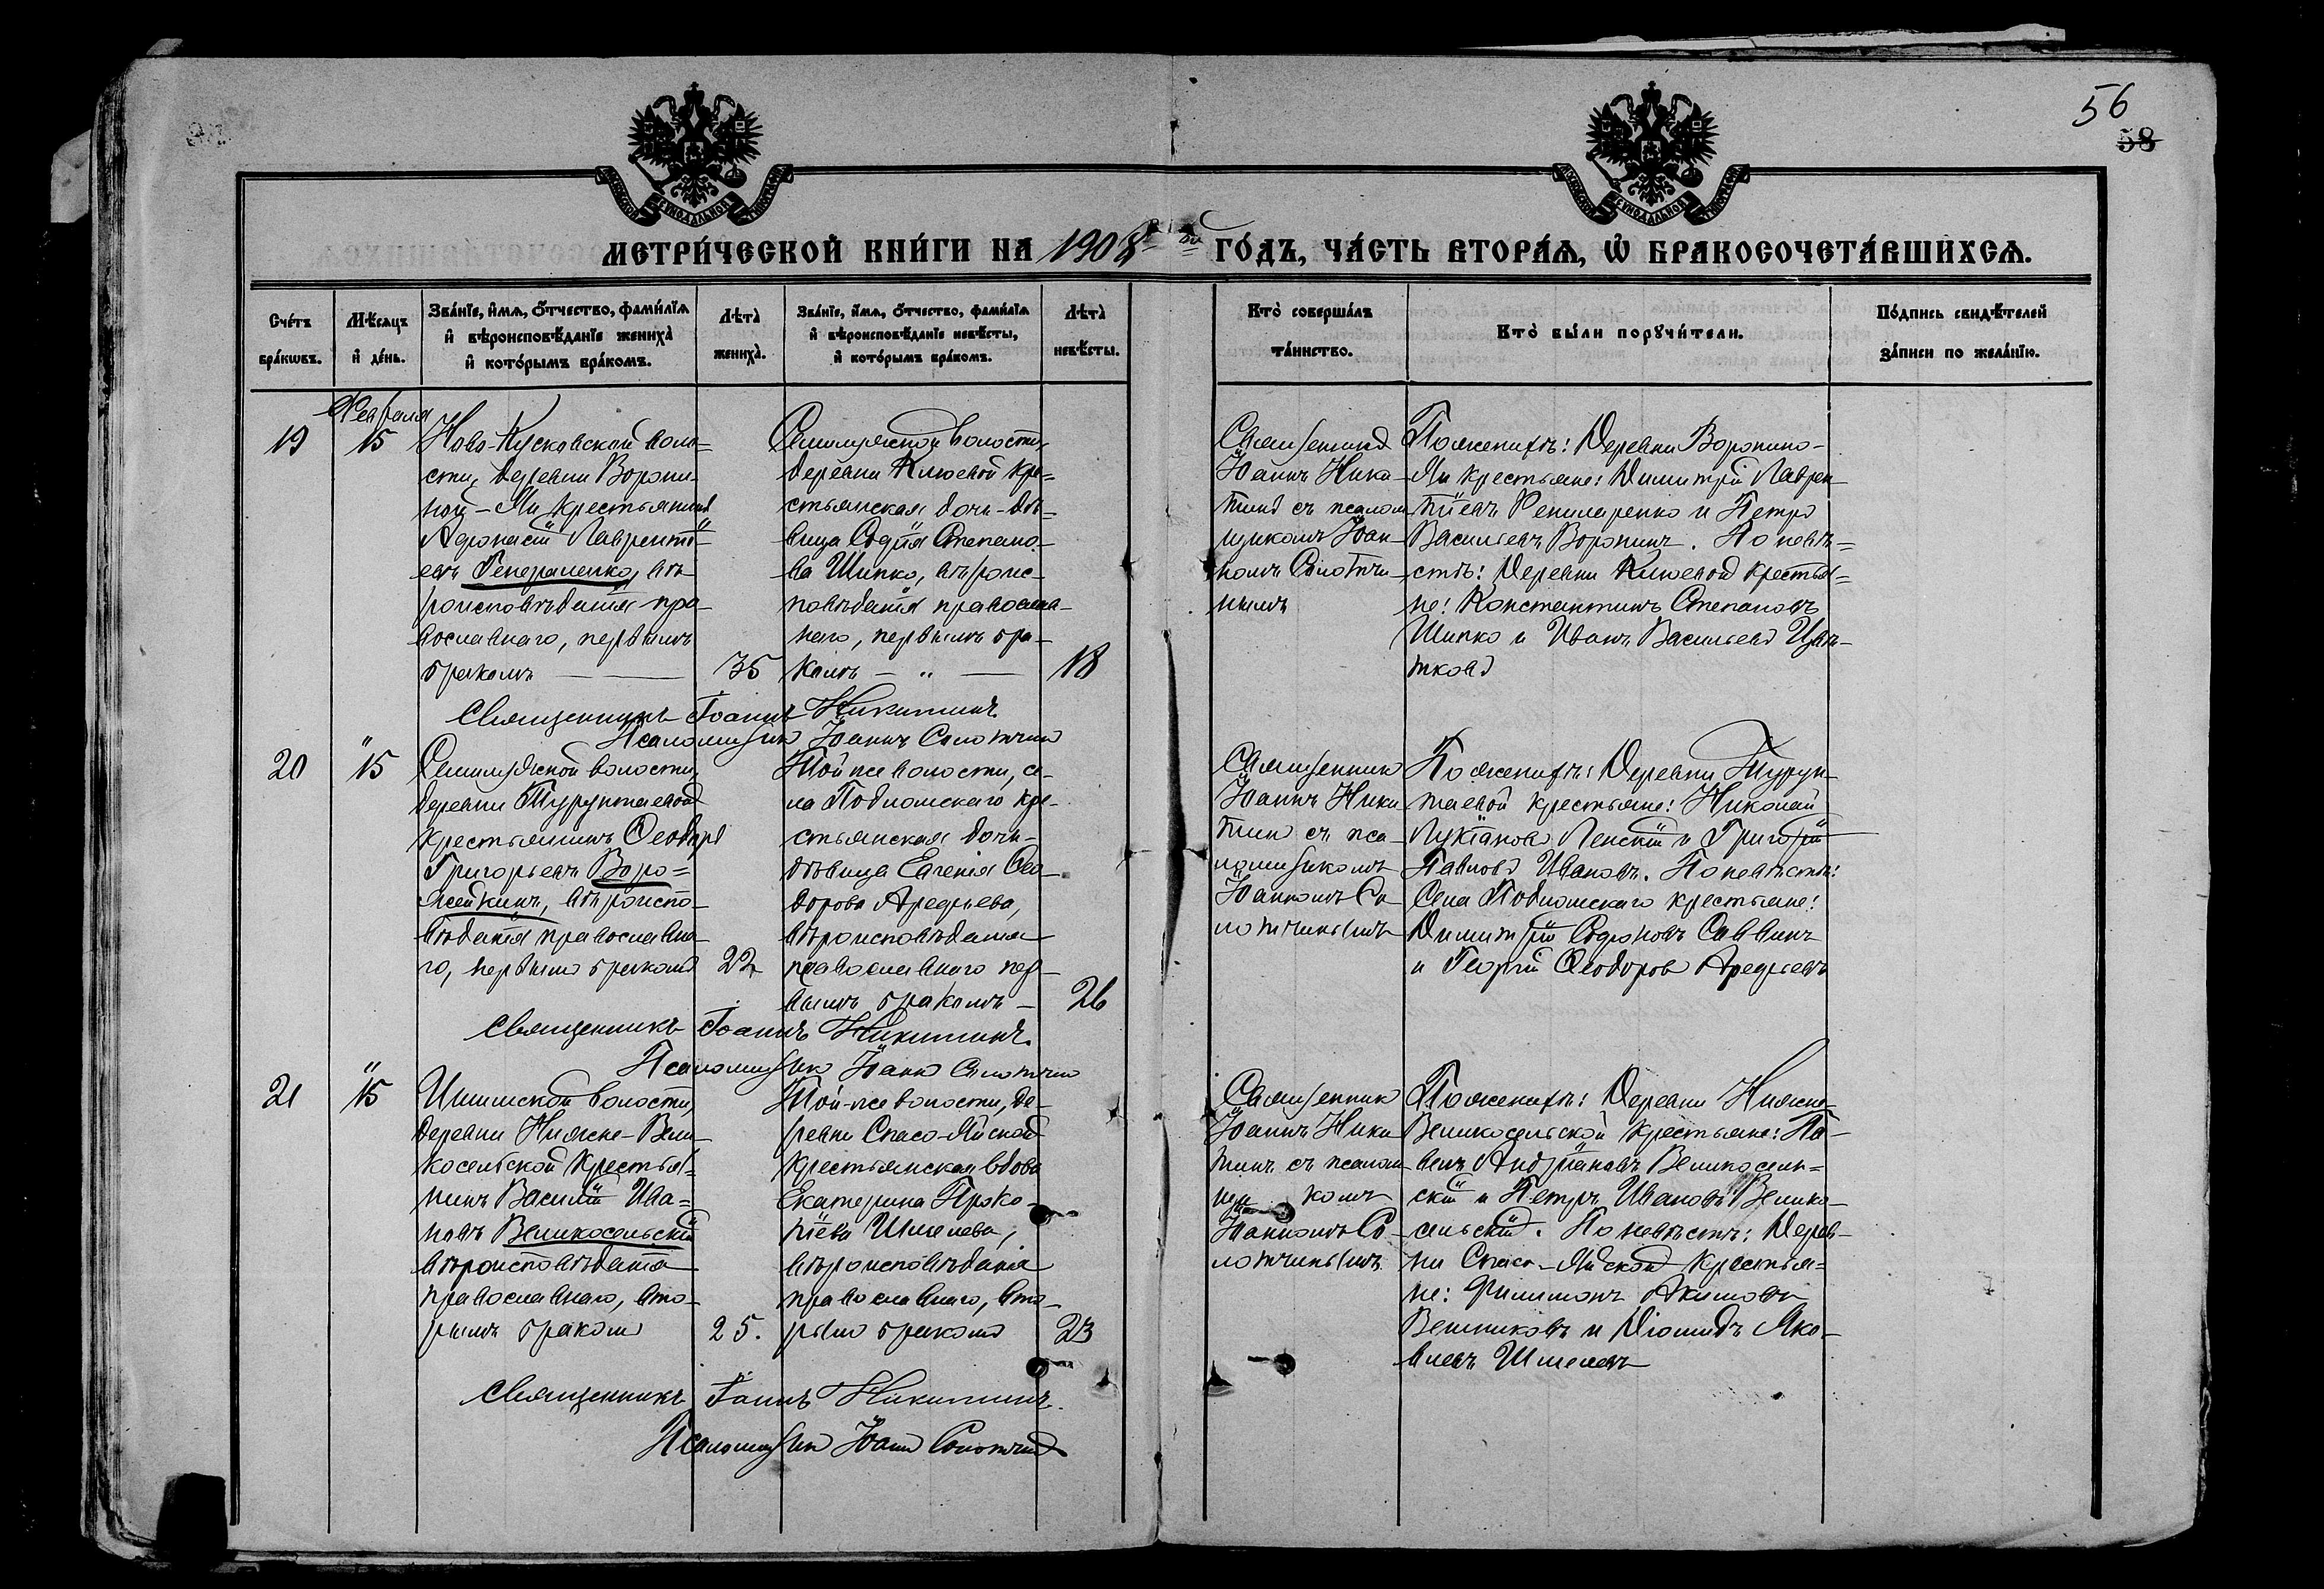 56
58
МЕТРИ́ЧЕСКОЙ КНИ́ГИ НА 1908й ГО́ДЪ, ЧА́СТЬ ВТОРА́Ѧ, Ѽ БРАКОСОЧЕТА́ВШИХСѦ.
Сче́тъ бра́кѡвъ.
Мѣ́сѧцъ и҆ де́нь.
Зва́нїе, и҆́мѧ, ѻ҆́тчество, фами́лїѧ
и҆ вѣроисповѣ́данїе жениха̀
и҆ кото́рымъ бра́комъ.
Лѣта̀ жениха̀.
Зва́нїе, и҆́мѧ, ѻ҆́тчество, фами́лїѧ
и҆ вѣроисповѣ́данїе невѣ́сты,
и҆ кото́рымъ бра́комъ.
Лѣта̀ невѣ́сты.
Кто̀ соверша́лъ
та́инство.
Кто̀ бы́ли порꙋчи́тели.
По́дпись свидѣ́телей
за́писи по жела́нїю.
Февраля
19
15
Ново-Кусковской воло=
сти, деревни Ворони-
ной-Яи крестьянинъ
Афонасій Лавренті=
евъ Генераленко, вѣ-
роисповѣданія пра-
вославнаго, первымъ
бракомъ
35
Семилужной волости,
деревни Клюевой кре=
стьянская дочь-дѣ-
вица Софія Степано-
ва Шипко, вѣроис-
повѣданія православ-
наго, первымъ бра-
комъ — „ —
18
Священникъ
Іоаннъ Ники-
тинъ съ псалом-
щикомъ Іоан-
номъ Солотчи-
нымъ
По женихѣ: Деревни Воронино-
Яи крестьяне: Димитрій Лаврен-
тіевъ и Петръ
Васильевъ Воронинъ. По невѣ=
стѣ: Деревни Клюевой крестья=
не: Константинъ Степановъ
Шипко и Иванъ Васильевъ Цвѣ-
тковъ
Священникъ Іоаннъ Никитинъ.
Псаломщикъ Іоаннъ Солотчинъ
20
" 15
Семилужной волости,
деревни Турунтаевой
крестьянинъ Ѳеодоръ
Григорьевъ Воро=
жейкинъ, вѣроиспо-
вѣданія православна-
го, первымъ бракомъ
22
Той же волости, се-
ла Подломскаго кре-
стьянская дочь-
дѣвица Евгенія Ѳео-
дорова Арефьева,
вѣроисповѣданія
православнаго пер-
вымъ бракомъ —
26
Священникъ
Іоаннъ Ники-
тинъ съ пса-
ломщикомъ
Іоанномъ Со-
лотчинымъ
По женихѣ: Деревни Турун-
таевой крестьяне: Николай
Лукіановъ Ленскій и Григорій
Павловъ Ивановъ. По невѣстѣ:
Села Подломскаго крестьяне:
Димитрій Софоновъ Саввинъ
и Георгій Ѳеодоровъ Арефьевъ
Священникъ Іоаннъ Никитинъ.
Псаломщикъ Іоаннъ Солотчинъ
21
" 15
Ишимской волости,
деревни Нижне-Вели-
косельской крестья=
нинъ Василій Ива=
новъ Великосельскій
вѣроисповѣданія
православнаго, вто-
рымъ бракомъ
25.
Той-же волости, де-
ревни Спасо-Яйской
крестьянская вдова
Екатерина Проко-
піева Шмелева,
вѣроисповѣданія
православнаго, вто-
рымъ бракомъ
23
Священникъ
Іоаннъ Ники-
тинъ съ псалом-
щикомъ
Іоанномъ Со-
лотчинымъ
По женихѣ: Деревни Нижне-
Великосельской крестьяне: Па-
велъ Андріановъ Великосель=
скій и Петръ Ивановъ Велико-
сельскій. По невѣстѣ: Дерев-
ни Спасо-Яйской крестья=
не: Филимонъ Акимовъ
Вешниковъ и Діомидъ Яко-
влевъ Шмелевъ
Священникъ Іоаннъ Никитинъ.
Псаломщикъ Іоаннъ Солотчинъ